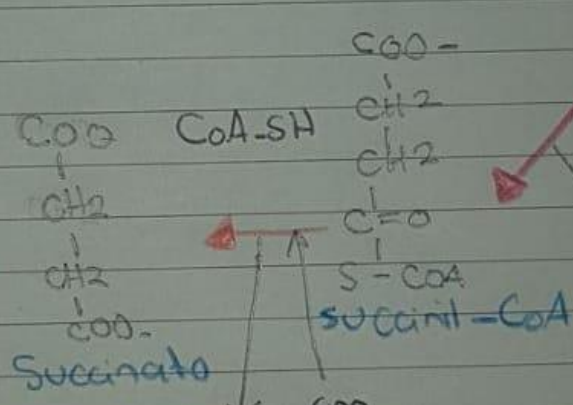 COO-
CH2
CH2
C=O
S-COA
succinil-COA
COA-SH
COO
CH2
CH2
COO-
Succinato